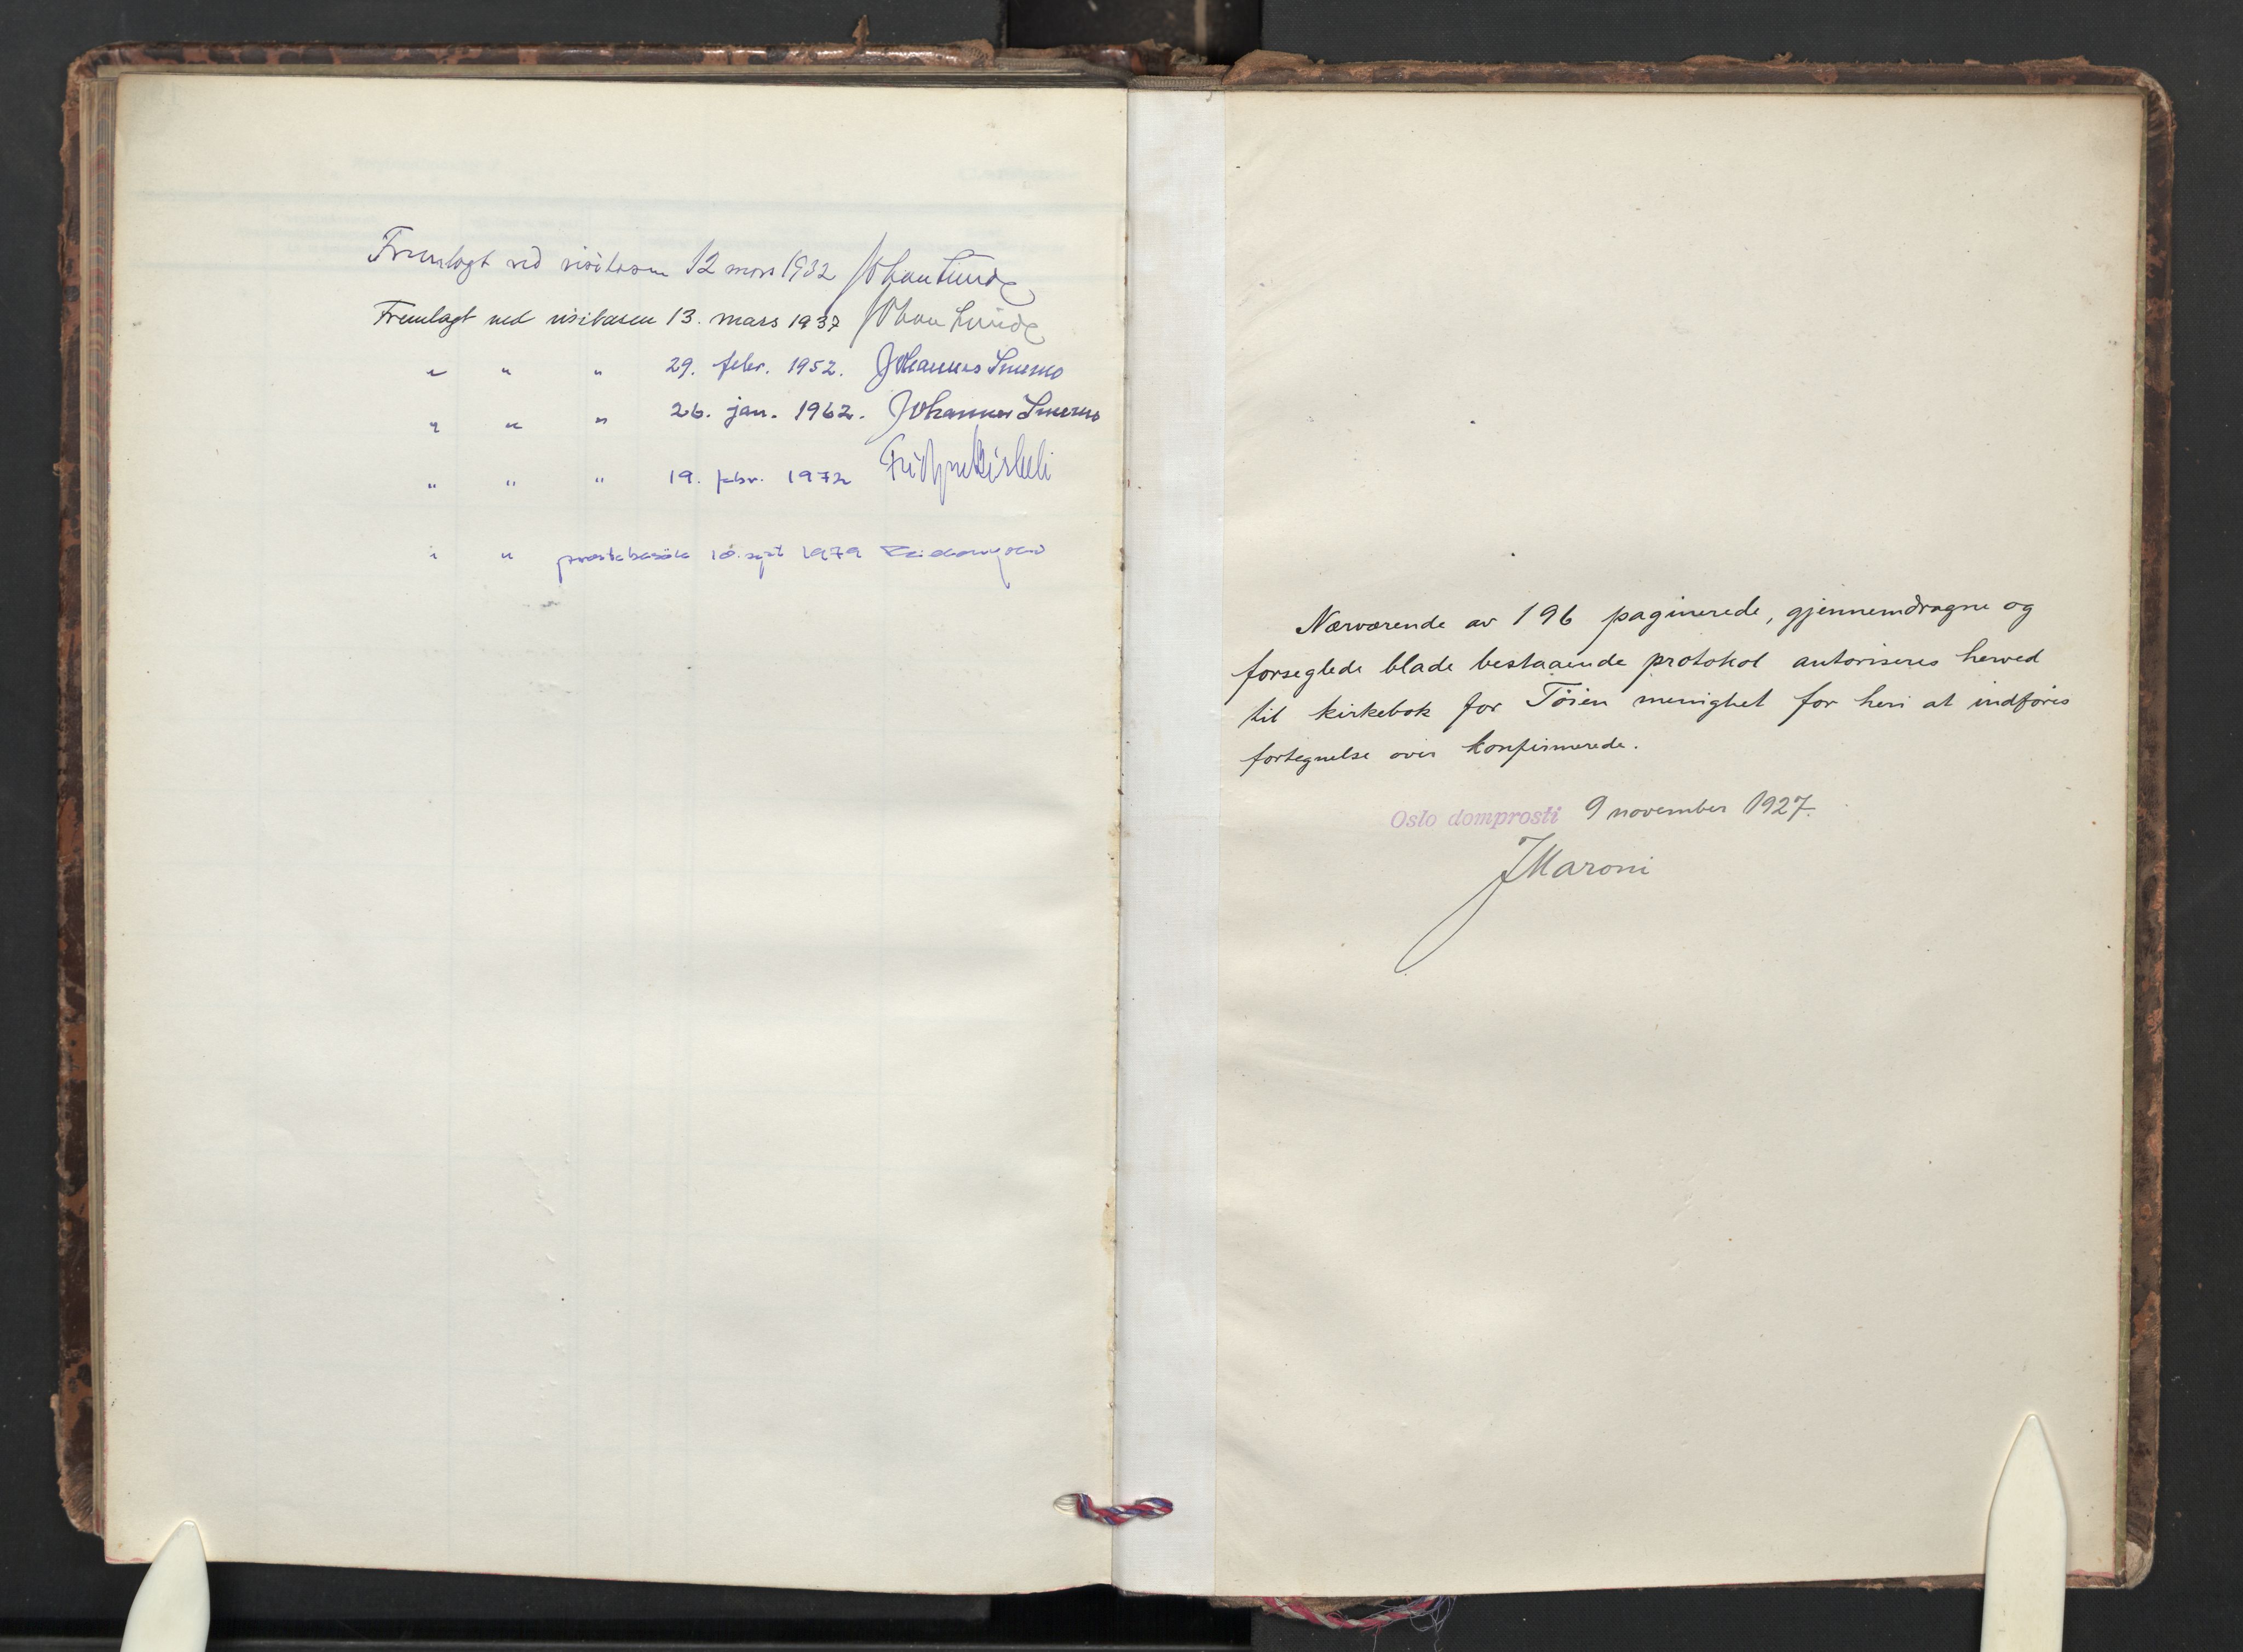 Fremlagt ved visitasen 12 mars 1932 Johan Lunde
Fremlagt ved visitasen 13. mars 1937 Johan Lunde
" " " 29. febr. 1952. Johannes Smemo
" " " 26. jan. 1962. Johannes Smemo
" " " 19. febr. 1972 Fridtjov Birkeli
" " prostebesøk 10. sept 1979
Nærværende av 196 paginerede, gjennemdragne og
forseglede blade bestaaende protokol autoriseres herved
til kirkebok for Tøien menighet for heri at indføres
fortegnelse over konfirmerede.
Oslo domprosti 9 november 1927.
JMaroni